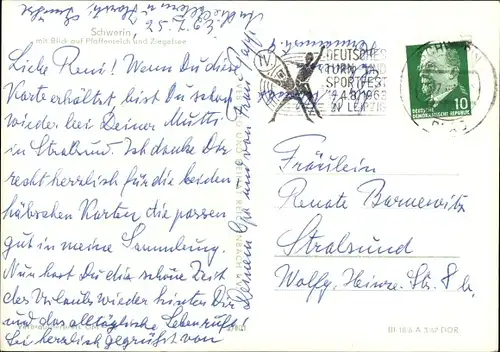 Schwerin,
mit Blick auf Pfaffenteich und Ziegelsee
Liebe René! Wenn Du diese
Karte erhältst bist Du schon
wieder bei Deiner Mutti
in Stralsund. Ich danke Dir
recht herzlich für die beiden
hübschen Karten die passen
gut in meine Sammlung.
Nun hast Du die schöne Zeit
des Urlaubs wieder hinter Dir
und das alltägliche Leben ruft.
Sei herzlich gegrüßt von
Deinem Opa und von Frau
IV.
DEUTSCHES
TURN- UND
SPORTFEST
1963
ZU LEIPZIG
SCHWERIN
10
DEUTSCHE
DEMOKRATISCHE REPUBLIK
Fräulein
Renate Barnewitz
Stralsund
Wolfg. Heinze-Str. 8 b,